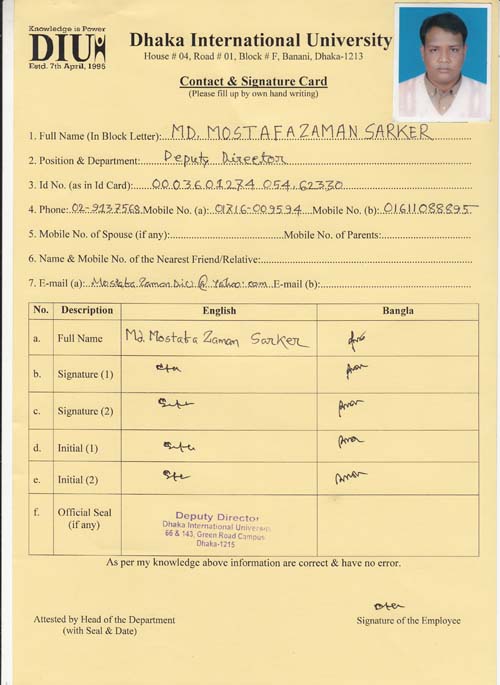 Knowledge is Power
DIU
Estd. 7th April, 1995
Dhaka International University
House # 04, Road # 01, Block # F, Banani, Dhaka-1213
Contact & Signature Card
(Please fill up by own hand writing)
1. Full Name (In Block Letter): MD. MOSTAFAZAMAN SARKER
2. Position & Department: Deputy Director
3. Id No. (as in Id Card): 0003601274 054,62330
4. Phone: 02-9137568 Mobile No. (a): 01716-009594 Mobile No. (b): 01611088895
5. Mobile No. of Spouse (if any): Mobile No. of Parents:
6. Name & Mobile No. of the Nearest Friend/Relative:
7. E-mail (a): MostafaZamanDiu@yahoo.com E-mail (b):
No. Description English Bangla
a. Full Name Md. Mostafa Zaman Sarker
b. Signature (1)
c. Signature (2)
d. Initial (1)
e. Initial (2)
f. Official Seal (if any)
Deputy Director
Dhaka International University
66 & 143, Green Road Campus
Dhaka-1215
As per my knowledge above information are correct & have no error.
Attested by Head of the Department
(with Seal & Date)
Signature of the Employee